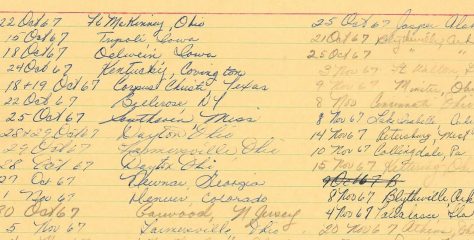 22 Oct 67 Ft McKinney, Ohio 25 Oct 67 Jasper
15 Oct 67 Tripoli Iowa 21 Oct 67 Blytheville Ark
18 Oct 67 Oelwein, Iowa 25 Oct 67
24 Oct 67 Kentucky, Covington 3 Nov 67 Ft
18+19 Oct 67 Corpus Christi Texas 9 Nov Minster, Ohio
22 Oct 67 Bellrose NY 8 Nov Cincinnati Ohio
25 Oct 67 Southaven Miss 8 Nov 67
28+29 Oct 67 Dayton Ohio 14 Nov 67 Petersburg, Mich
29 Oct 67 Farmersville Ohio 10 Nov 67 Collingdale, Pa
28 Oct 67 Dayton Ohi 15 Nov 67 Kettering
27 Oct 67 Newnan, Georgia
1 Nov 67 Denver, Colorado 8 Nov 67 Blytheville Ark
30 Oct 67 Garwood, N Jersey 4 Nov 67
5 Nov 67 Farmersville Ohio 20 Nov 67 Athens